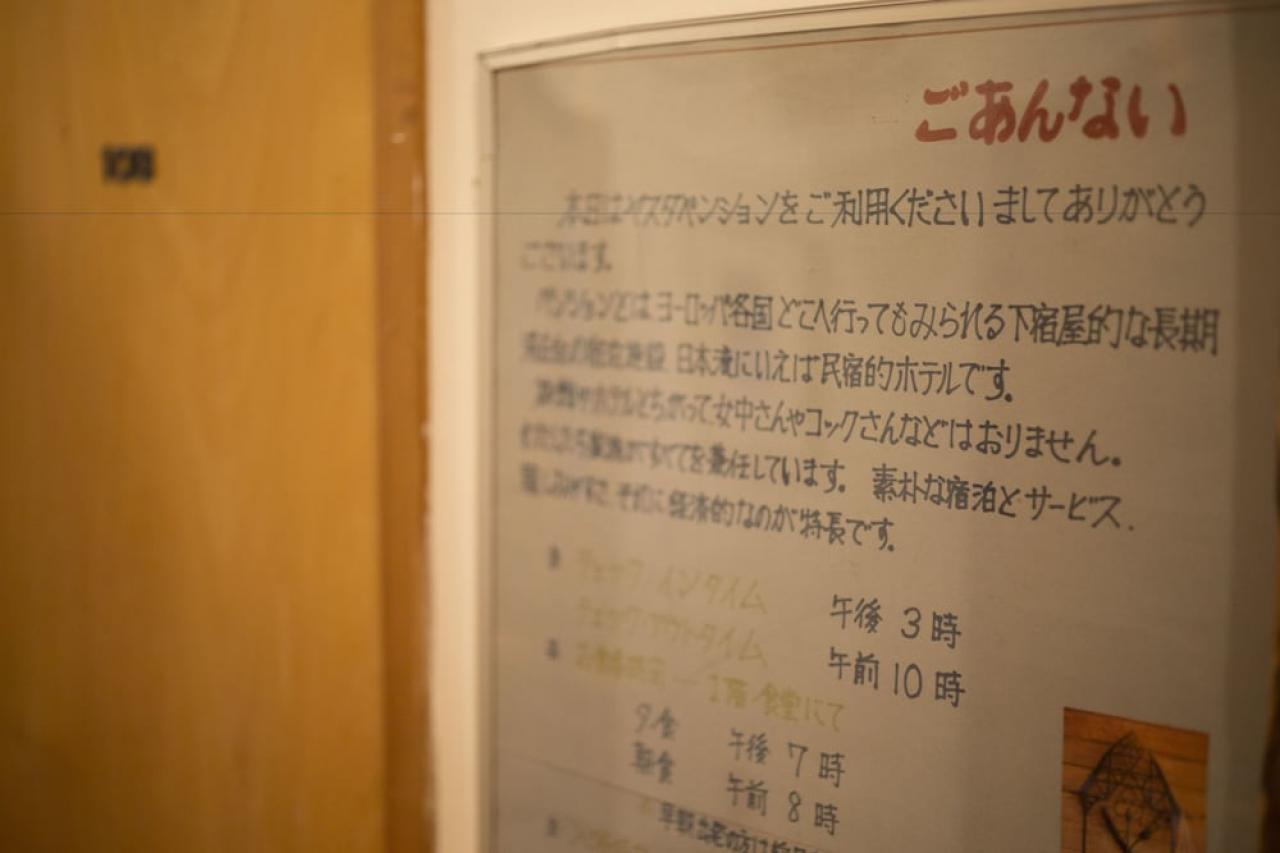 108
ごあんない
本日はベスタペンションをご利用くださいましてありがとう
ございます。
ペンションとはヨーロッパ各国どこへ行ってもみられる下宿屋的な長期
日本流にいえば民宿的ホテルです。
旅館やホテルとちがって女中さんやコックさんなどはおりません。
すべてを兼任しています。 素朴な宿泊とサービス.
親しみやすさ、それに経済的なのが特長です。
チェック・インタイム 午後 3時
チェック・アウトタイム 午前 10時
1階 食堂にて
夕食 午後 7時
朝食 午前 8時